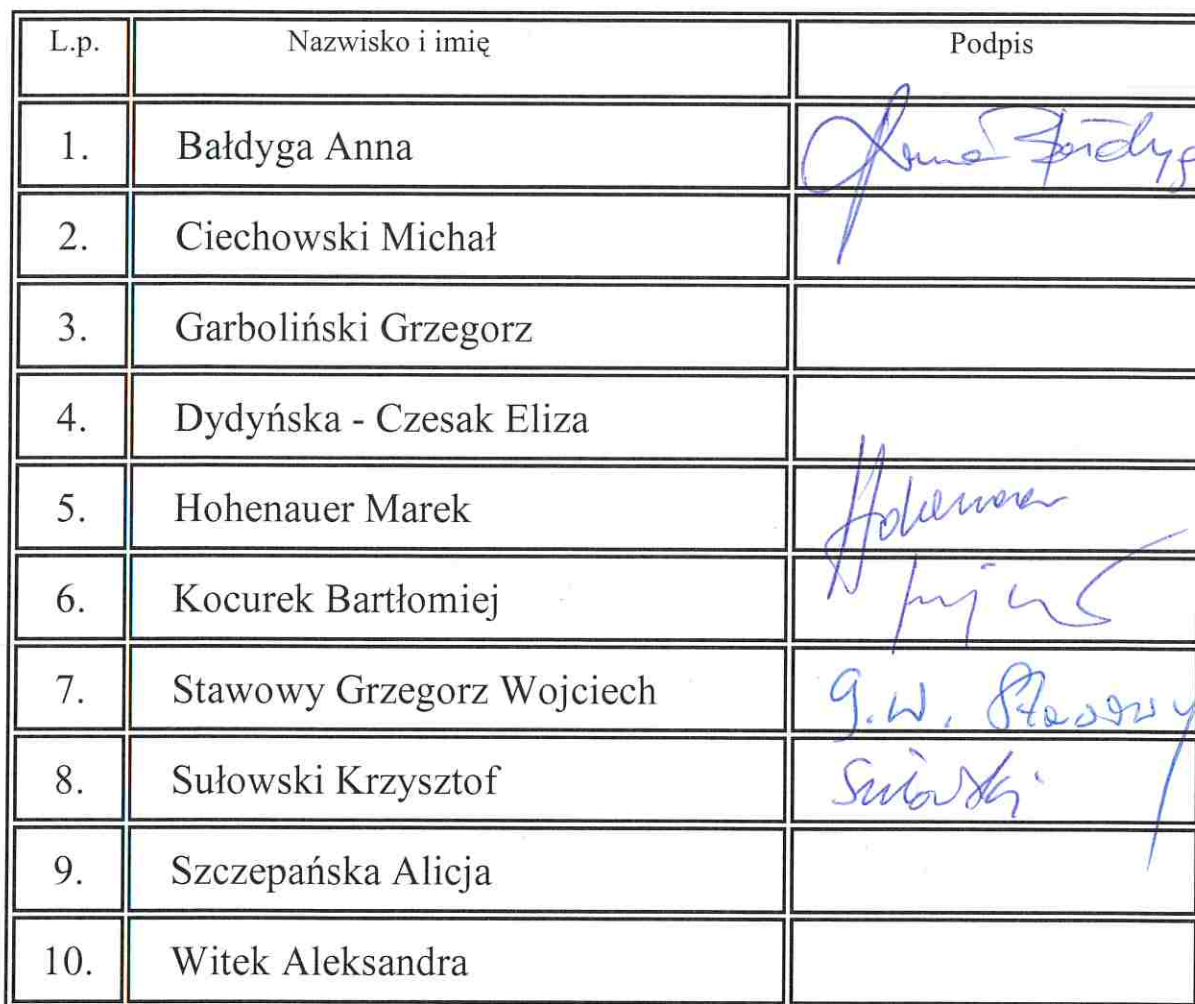 L.p. Nazwisko i imię Podpis
1. Bałdyga Anna Anna Bałdyga
2. Ciechowski Michał
3. Garboliński Grzegorz
4. Dydyńska - Czesak Eliza
5. Hohenauer Marek Hohenauer
6. Kocurek Bartłomiej
7. Stawowy Grzegorz Wojciech G.W. Stawowy
8. Sułowski Krzysztof Sułowski
9. Szczepańska Alicja
10. Witek Aleksandra